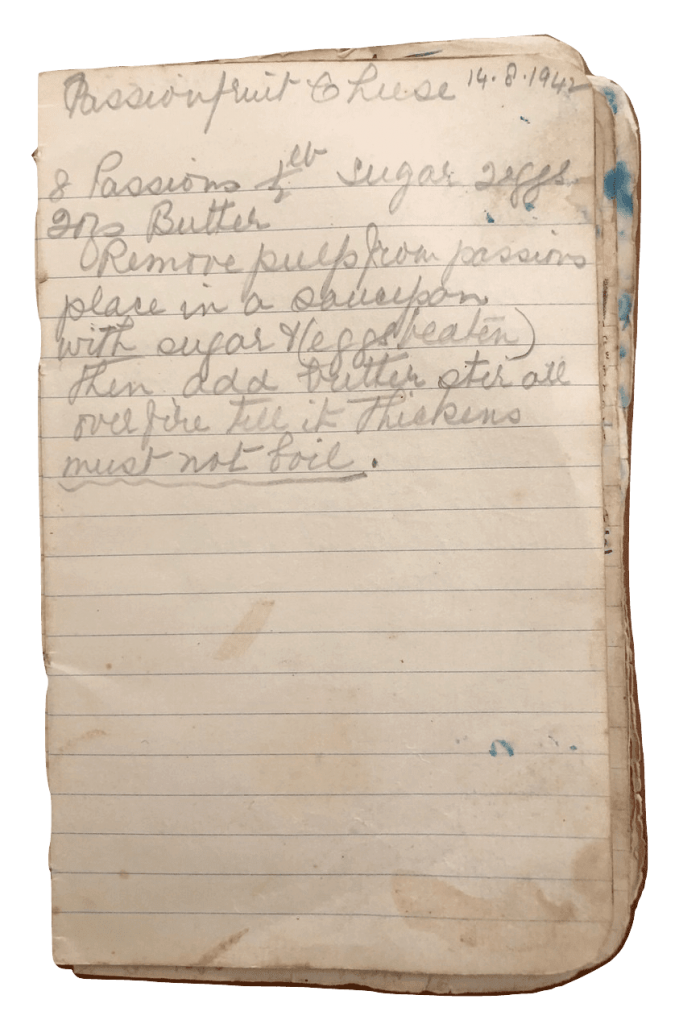 Passionfruit Cheese 14.8.1942
8 Passions ½ lb Sugar 2 eggs
2ozs Butter
Remove pulp from passions
place in a saucepan
with sugar & (eggs beaten)
then add butter stir all
over fire till it thickens
must not boil.